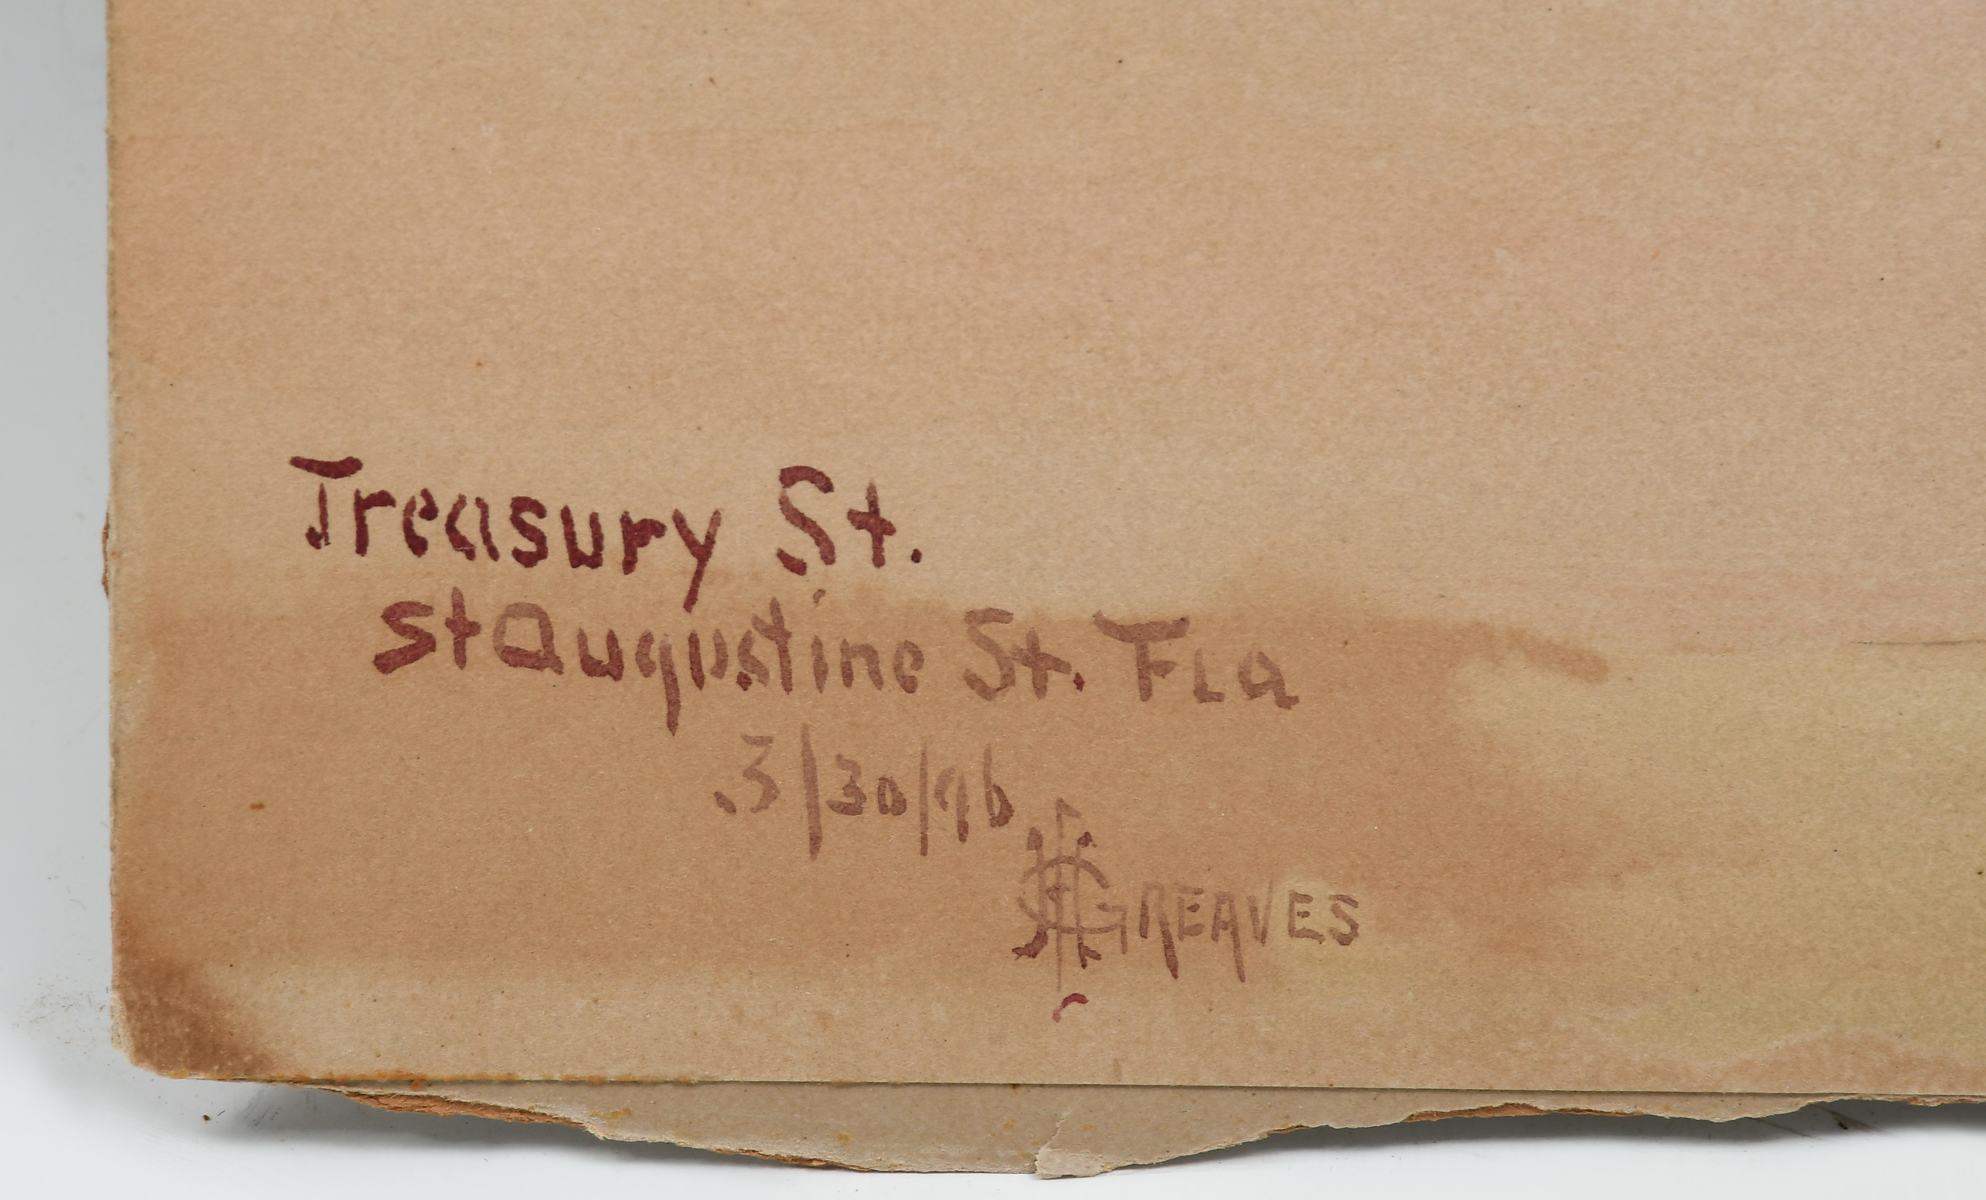 Treasury St.
St Augustine St. Fla
3/30/96
GREAVES